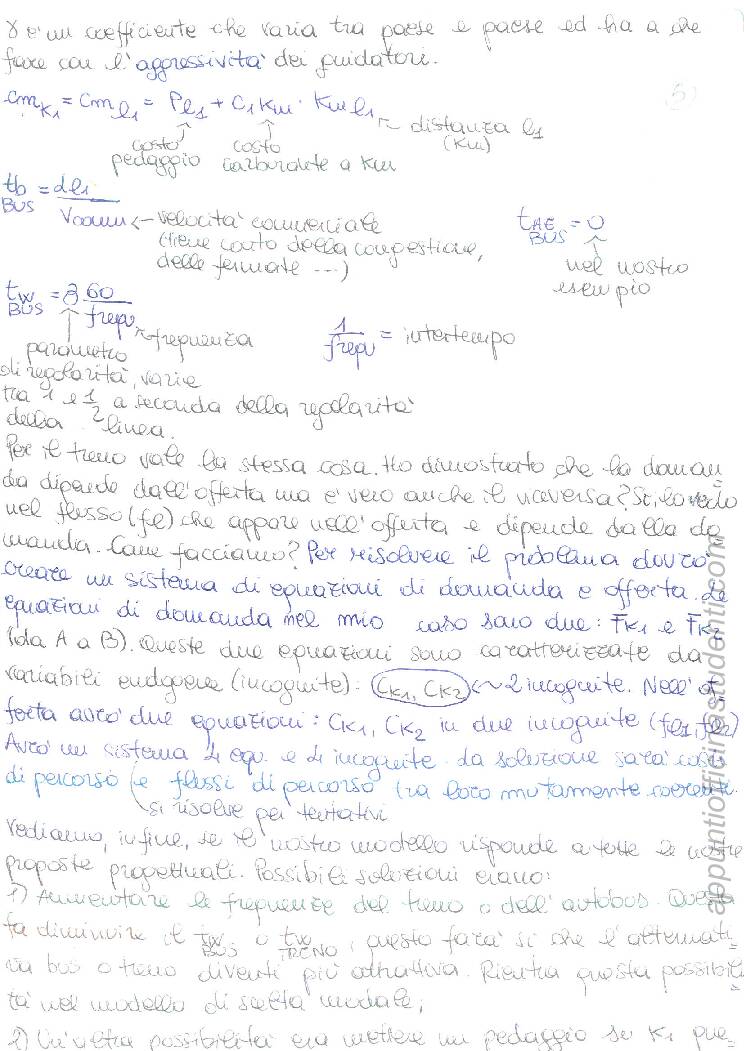 γ e' un coefficiente che varia tra paese e paese ed ha a che
fare con l'aggressività dei guidatori.
5)
CmK1 = Cml1 = Pl1 + C1Km · Kml1
distanza l1
(Km)
costo pedaggio
costo carburante a Km
tb BUS = dl1 / Vcomm
velocità commerciale
(tiene conto della congestione,
delle fermate ...)
tAE BUS = 0
nel nostro
esempio
tw BUS = 60 / frequ
frequenza
1 / frequ = intertempo
parametro
di regolarità, varia
tra 1 e 1/2 a seconda della regolarità
della linea.
Per il treno vale la stessa cosa. Ho dimostrato che la doman
da dipende dall'offerta ma e' vero anche il viceversa? Sì, lo vedo
nel flusso (fl) che appare nell'offerta e dipende dalla do
manda. Come facciamo? Per risolvere il problema dovrò
creare un sistema di equazioni di domanda e offerta. Le
equazioni di domanda nel mio caso sono due: FK1 e FK2
(da A a B). Queste due equazioni sono caratterizzate da
variabili endogene (incognite): CK1, CK2 ~ 2 incognite. Nell'of
ferta avrò due equazioni: CK1, CK2 in due incognite (fl1, fl2)
Avrò un sistema 4 equ. e 4 incognite. La soluzione sarà costi
di percorso e flussi di percorso tra loro mutamente coerenti.
si risolve per tentativi
Vediamo, infine, se il nostro modello risponde a tutte le nostre
proposte progettuali. Possibili soluzioni erano:
1) Aumentare le frequenze del treno o dell'autobus. Questo
fa diminuire il tw BUS o tw TRENO, questo farà sì che l'alternati
va bus o treno diventi più attrattiva. Rientra questa possibili
tà nel modello di scelta modale;
2) Un'altra possibilità era mettere un pedaggio su K1 que
appuntiofficinestudenti.com